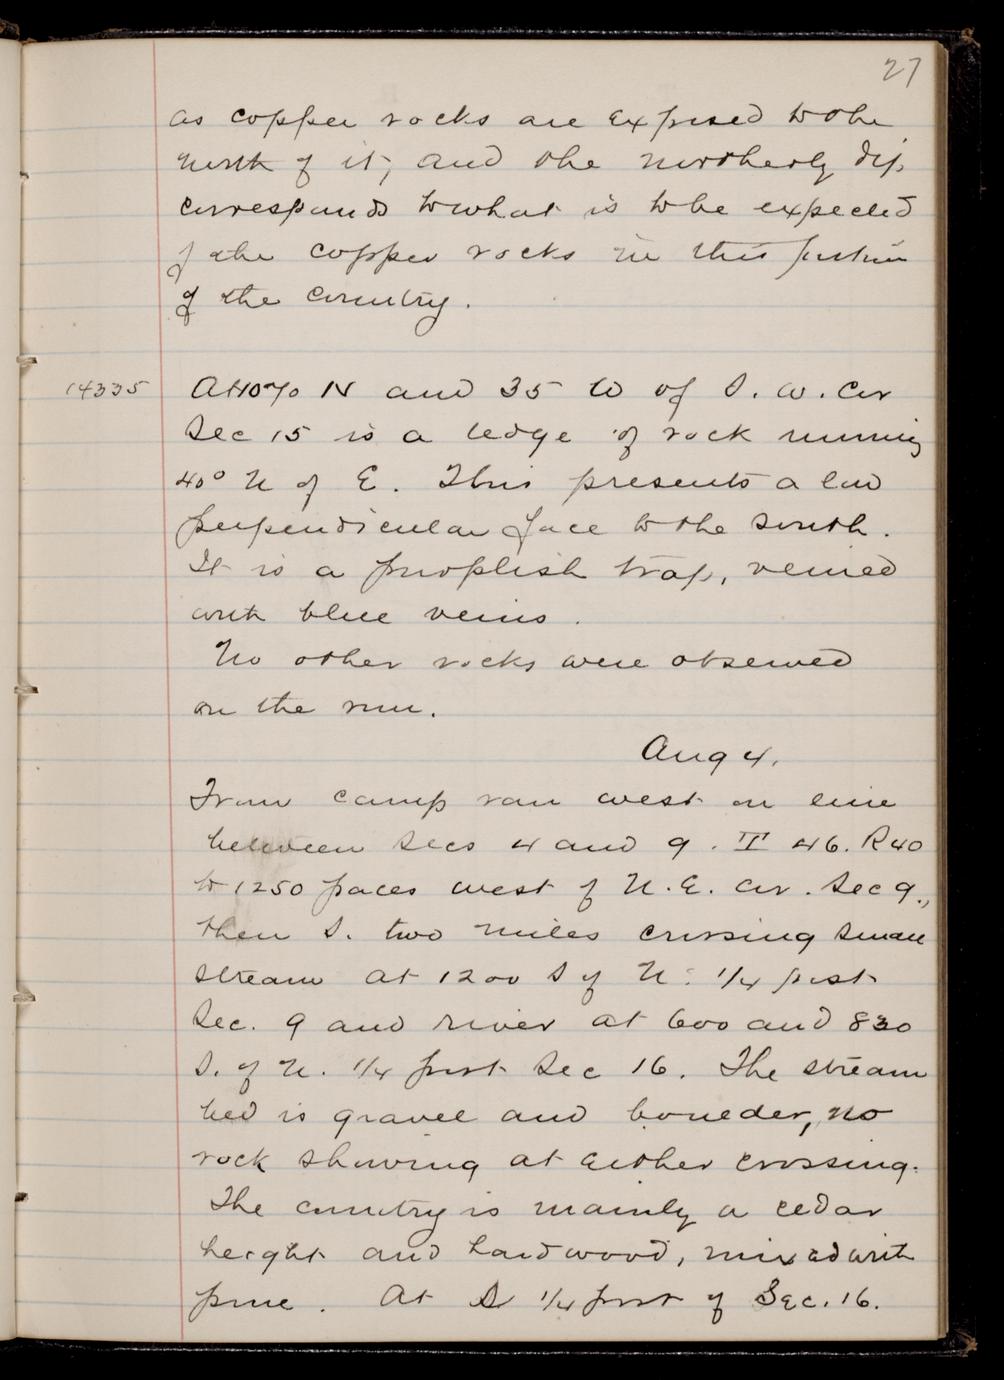 27
as copper rocks are exposed to the
north of it, and the northerly dip
corresponds to what is to be expected
of the copper rocks in this portion
of the country.
14335 At 1070 N and 35 W of S. W. Cor
Sec 15 is a ledge of rock running
40° N of E. This presents a low
perpendicular face to the south.
It is a purplish trap, veined
with blue veins.
No other rocks were observed
on the run.
Aug 4.
From camp ran west on line
between Secs 4 and 9. T 46. R40
to 1250 paces west of N. E. Cor. Sec 9.,
then S. two miles crossing small
stream at 1200 S of N. 1/4 post
Sec. 9 and river at 600 and 830
S. of N. 1/4 post Sec 16. The stream
bed is gravel and boulder, no
rock showing at either crossing.
The country is mainly a cedar
height and hardwood, mixed with
pine. At S 1/4 post of Sec. 16.